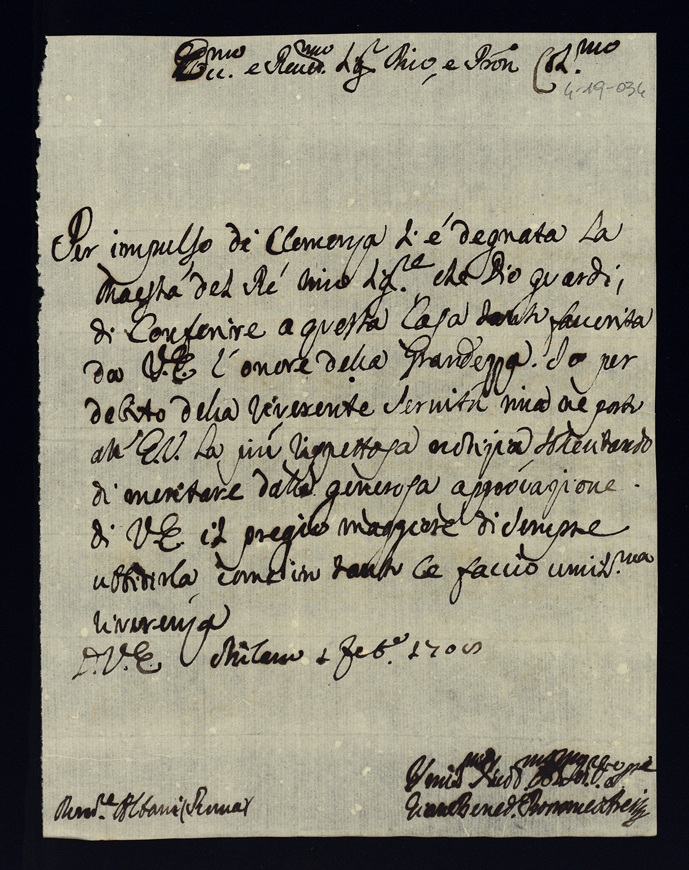 Ecc.mo e Rever.mo Sig.r Mio, e Pron Col.mo
4-19-034
Per impulso di Clemenza s'è degnata La
Maestà del Rè mio Sig.re che Dio guardi,
di Conferire a questa Casa tanto favorita
da V.E. l'onore della Grandezza. Io per
debito della riverente servitù mia ne porto
all'E.V. La più rispettosa notizia
di meritare dalla generosa approvazione
di V.E. il pregio maggiore di sempre
ubbidirla come in tanto le faccio umil.ma
riverenza
D.V.E. Milano Feb.o
Albani Roma